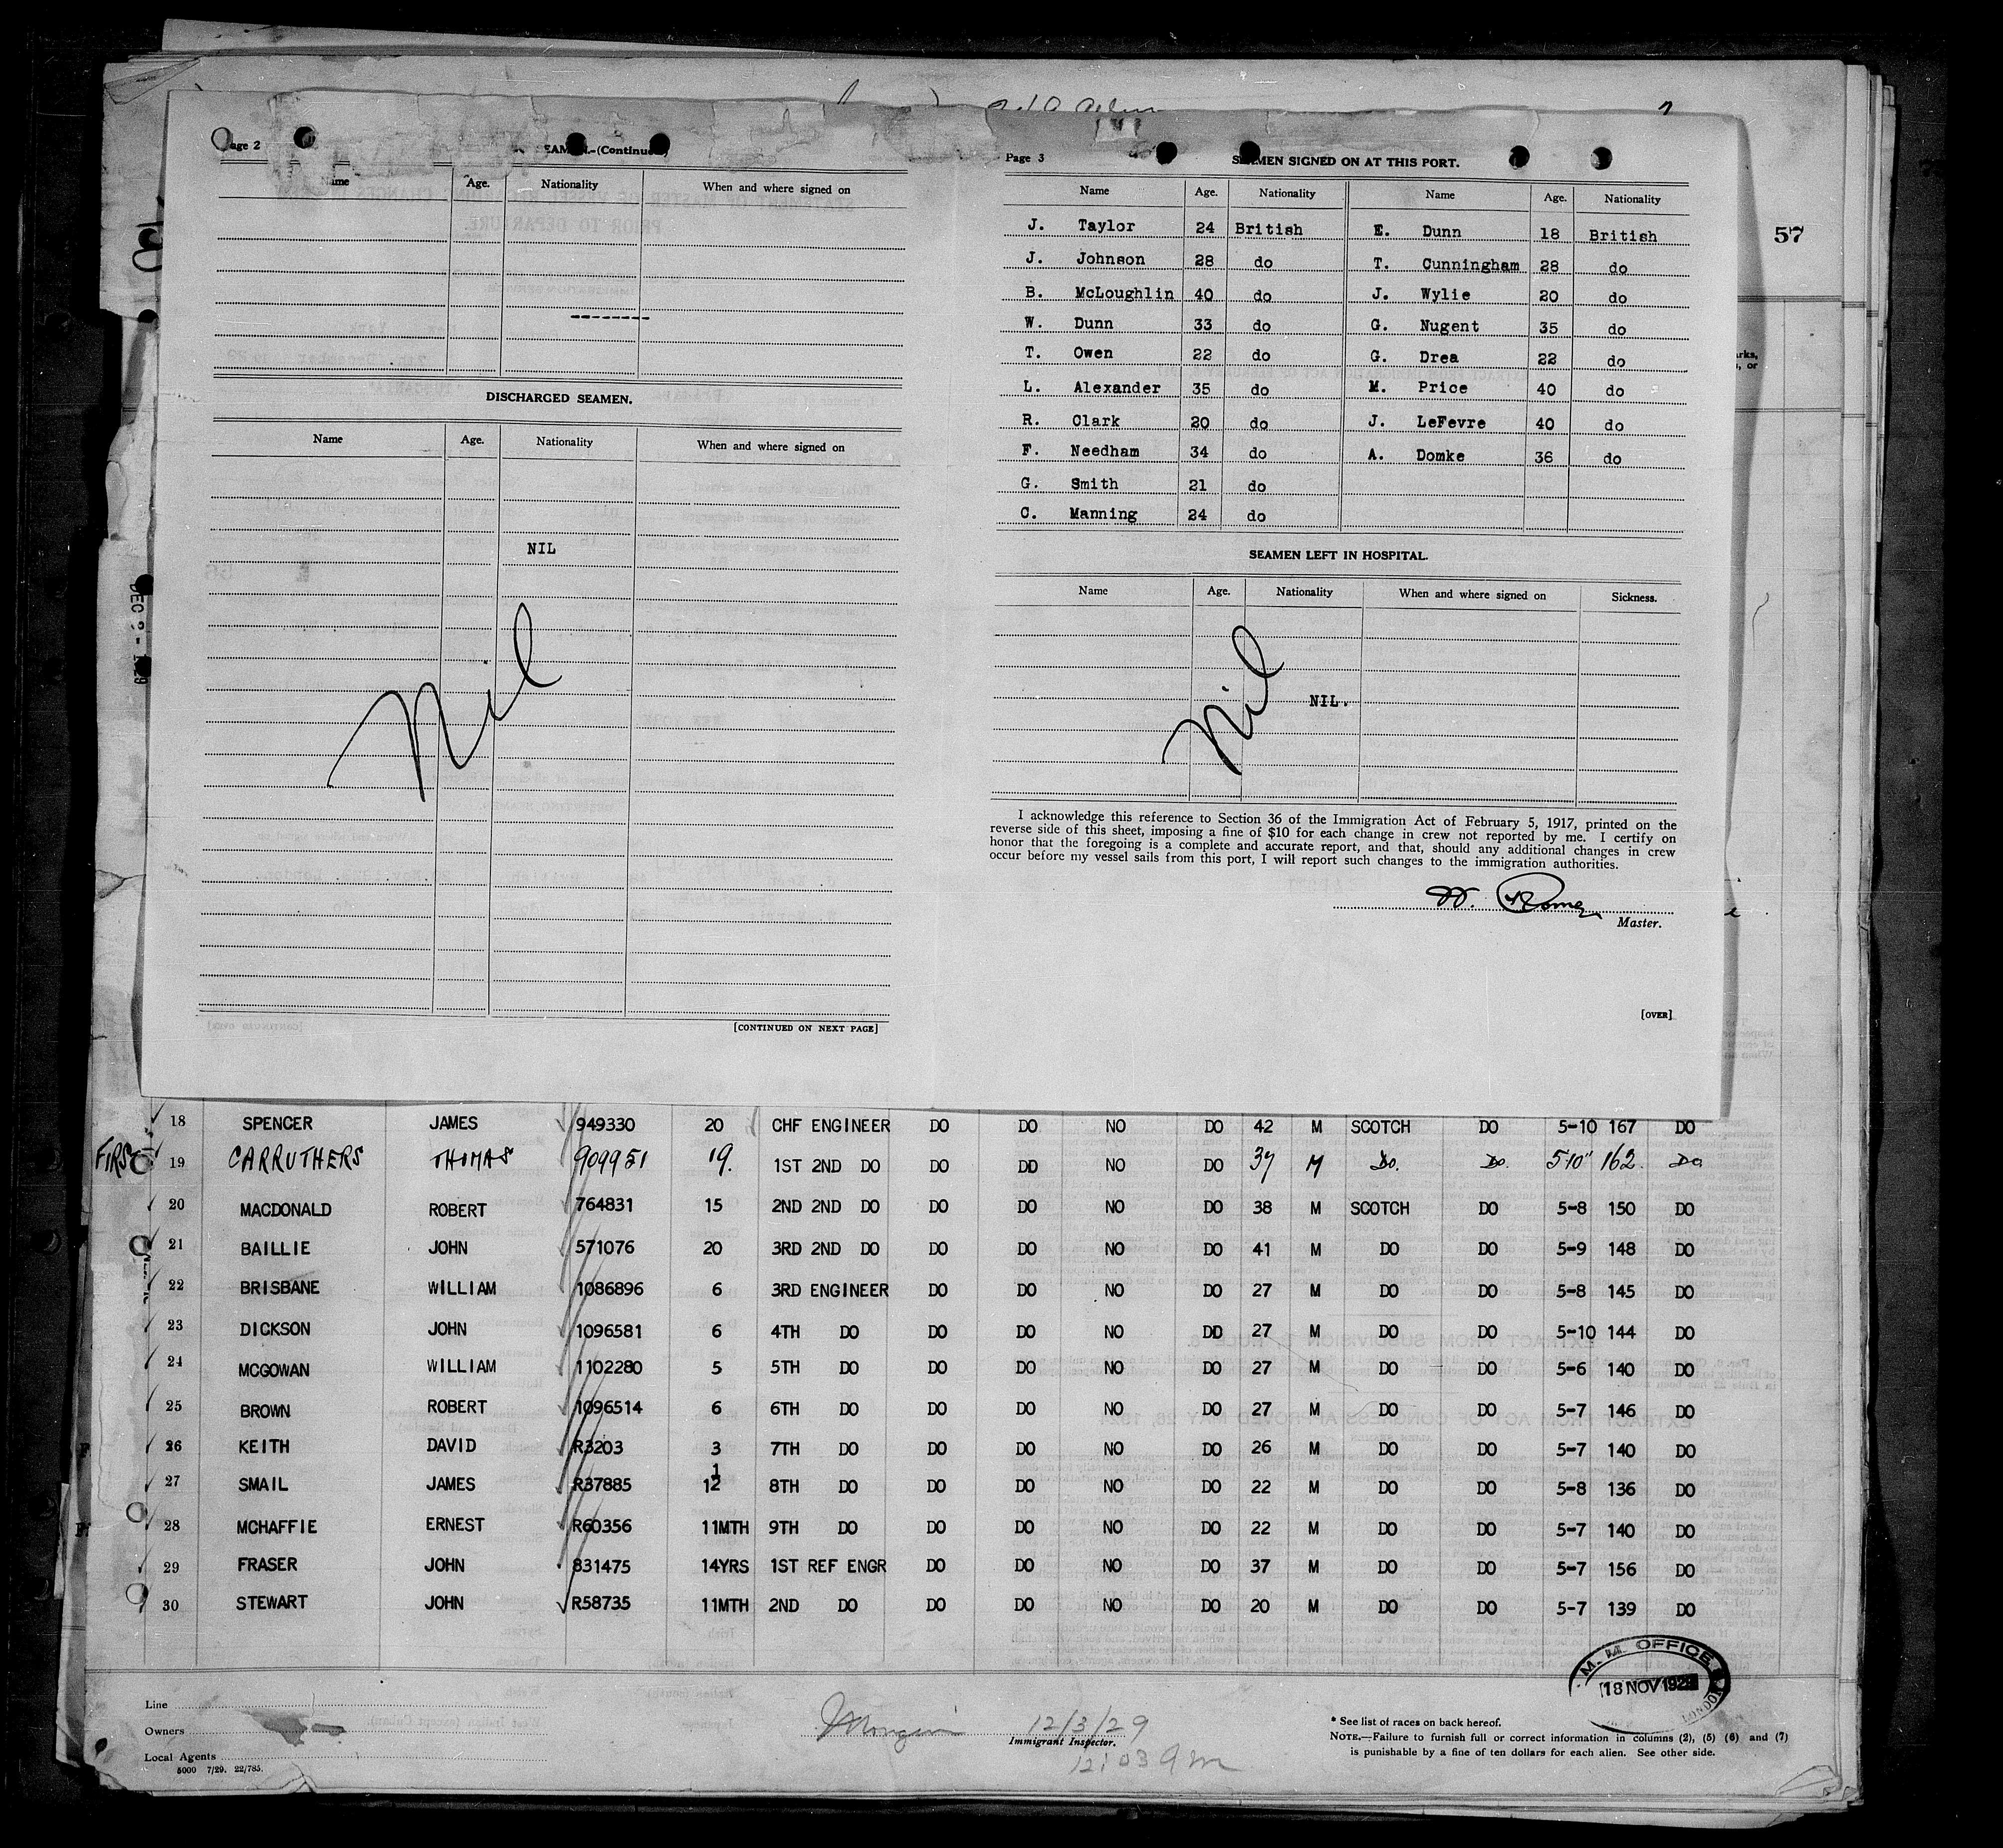 Page 2
SEAMEN.-(Continued)
Name Age. Nationality When and where signed on
DISCHARGED SEAMEN.
Name Age. Nationality When and where signed on
NIL
Nil
[CONTINUED ON NEXT PAGE]
Page 3
SEAMEN SIGNED ON AT THIS PORT.
Name Age. Nationality Name Age. Nationality
J. Taylor 24 British E. Dunn 18 British
J. Johnson 28 do T. Cunningham 28 do
B. McLoughlin 40 do J. Wylie 20 do
W. Dunn 33 do G. Nugent 35 do
T. Owen 22 do G. Drea 22 do
L. Alexander 35 do M. Price 40 do
R. Clark 20 do J. LeFevre 40 do
F. Needham 34 do A. Domke 36 do
G. Smith 21 do
C. Manning 24 do
SEAMEN LEFT IN HOSPITAL.
Name Age. Nationality When and where signed on Sickness.
NIL.
Nil
I acknowledge this reference to Section 36 of the Immigration Act of February 5, 1917, printed on the
reverse side of this sheet, imposing a fine of $10 for each change in crew not reported by me. I certify on
honor that the foregoing is a complete and accurate report, and that, should any additional changes in crew
occur before my vessel sails from this port, I will report such changes to the immigration authorities.
Master.
[OVER]
57
18 SPENCER JAMES 949330 20 CHF ENGINEER DO DO NO DO 42 M SCOTCH DO 5-10 167 DO
FIRST 19 CARRUTHERS THOMAS 909951 19. 1ST 2ND DO DO DO NO DO 37 M Do. Do. 5'10" 162. Do.
20 MACDONALD ROBERT 764831 15 2ND 2ND DO DO DO NO DO 38 M SCOTCH DO 5-8 150 DO
21 BAILLIE JOHN 571076 20 3RD 2ND DO DO DO NO DO 41 M DO DO 5-9 148 DO
22 BRISBANE WILLIAM 1086896 6 3RD ENGINEER DO DO NO DO 27 M DO DO 5-8 145 DO
23 DICKSON JOHN 1096581 6 4TH DO DO DO NO DO 27 M DO DO 5-10 144 DO
24 MCGOWAN WILLIAM 1102280 5 5TH DO DO DO NO DO 27 M DO DO 5-6 140 DO
25 BROWN ROBERT 1096514 6 6TH DO DO DO NO DO 27 M DO DO 5-7 146 DO
26 KEITH DAVID R3203 3 7TH DO DO DO NO DO 26 M DO DO 5-7 140 DO
27 SMAIL JAMES R37885 1 12 8TH DO DO DO NO DO 22 M DO DO 5-8 136 DO
28 MCHAFFIE ERNEST R60356 11MTH 9TH DO DO DO NO DO 22 M DO DO 5-7 140 DO
29 FRASER JOHN 831475 14YRS 1ST REF ENGR DO DO NO DO 37 M DO DO 5-7 156 DO
30 STEWART JOHN R58735 11MTH 2ND DO DO DO NO DO 20 M DO DO 5-7 139 DO
M. M. OFFICE
18 NOV 1929
LONDON
Line
Owners
Local Agents
5000 7/29. 22/785.
12/3/29
Immigrant Inspector.
12:03 am
* See list of races on back hereof.
NOTE.—Failure to furnish full or correct information in columns (2), (5) (6) and (7)
is punishable by a fine of ten dollars for each alien. See other side.